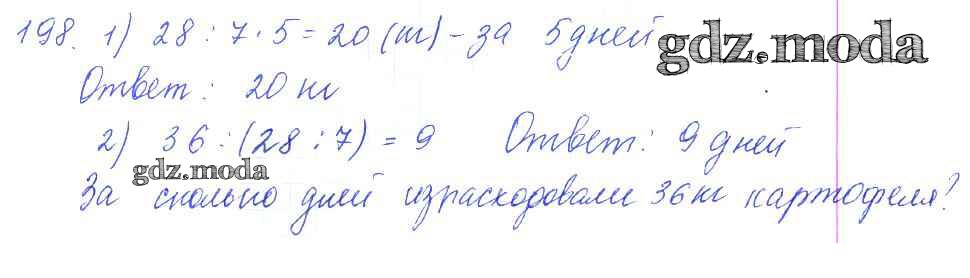 198. 1) 28 : 7 · 5 = 20 (кг) - за 5 дней
gdz.moda
Ответ: 20 кг
2) 36 : (28 : 7) = 9 Ответ: 9 дней
gdz.moda
За сколько дней израсходовали 36 кг картофеля?